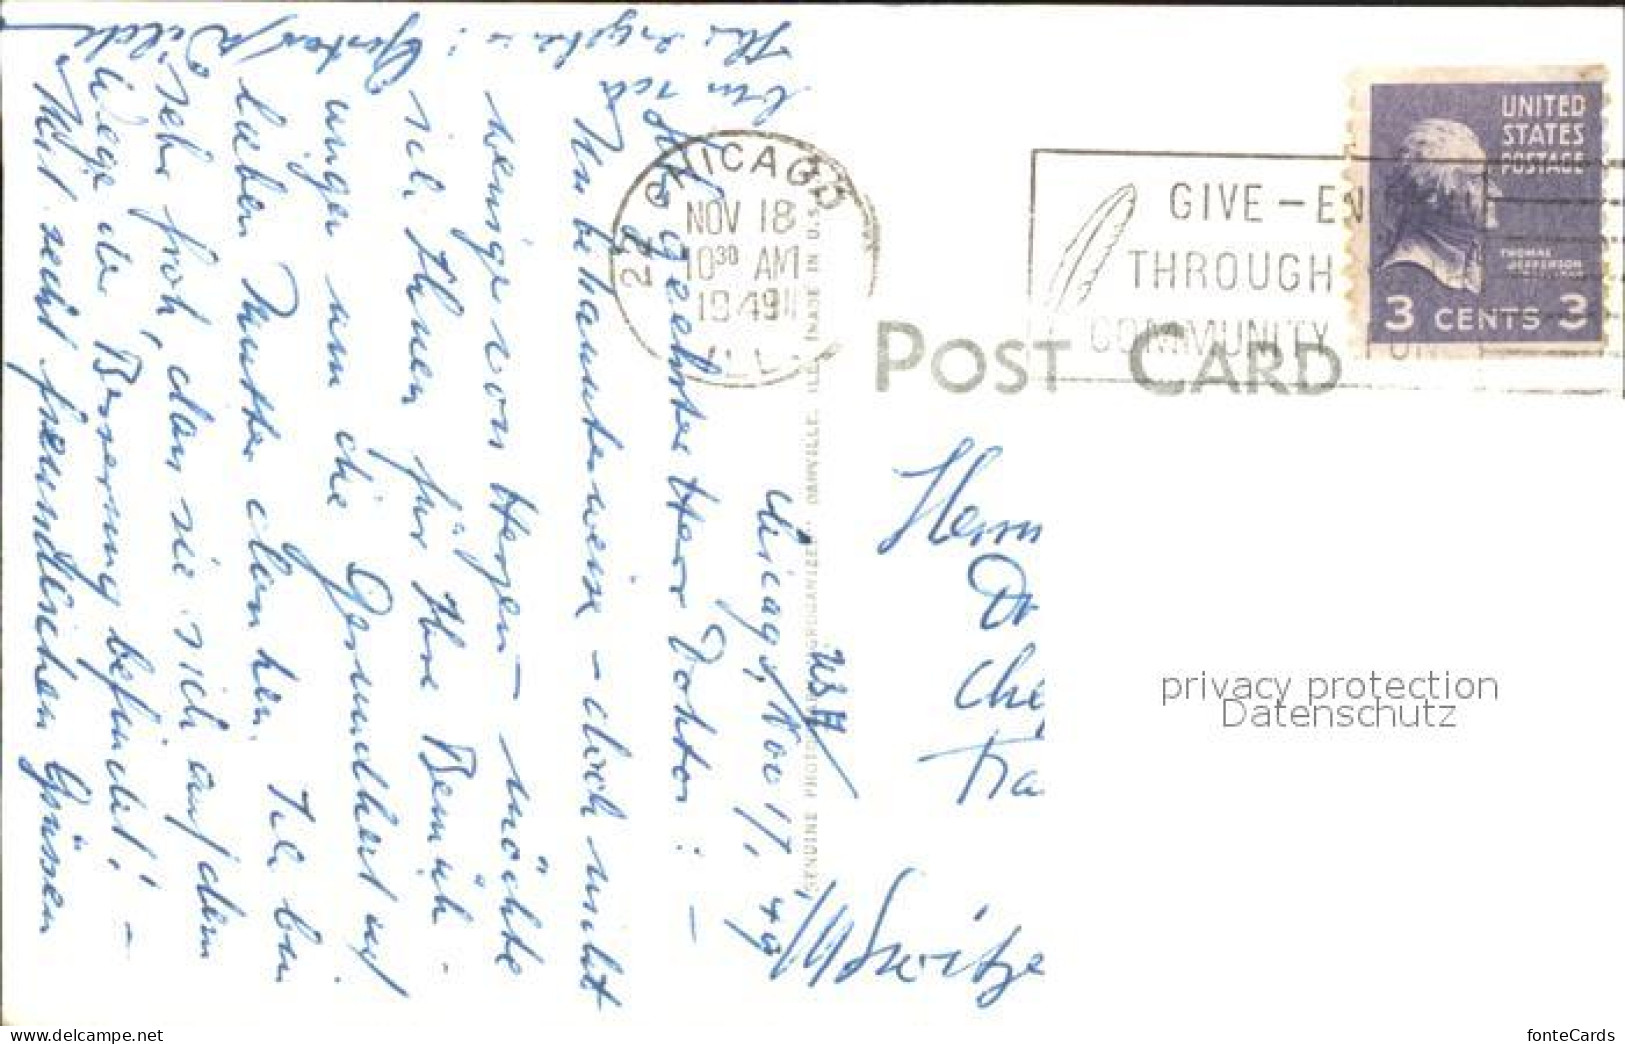 Chicago, Nov 17, 49
USA
Sehr geehrter Herr Doktor! –
Unbekannterweise – doch nicht
weniger von Herzen – möchte
ich Ihnen für Ihre Bemüh-
ungen um die Gesundheit
lieben Mutter danken. Ich bin
sehr froh, dass sie sich auf dem
Wege der Besserung befindet! –
Mit recht freundlichen Grüssen
bin ich
Ihr
CHICAGO
22
NOV 18
10 30 AM
1949
ILL.
GIVE – EN
THROUGH
COMMUNITY
UNITED
STATES
POSTAGE
THOMAS
JEFFERSON
3 CENTS 3
POST CARD
GENUINE DANVILLE, ILL. MADE IN U.S.
Herrn
Dr
Switze
privacy protection
Datenschutz
https://www.delcampe.net
fonteCards